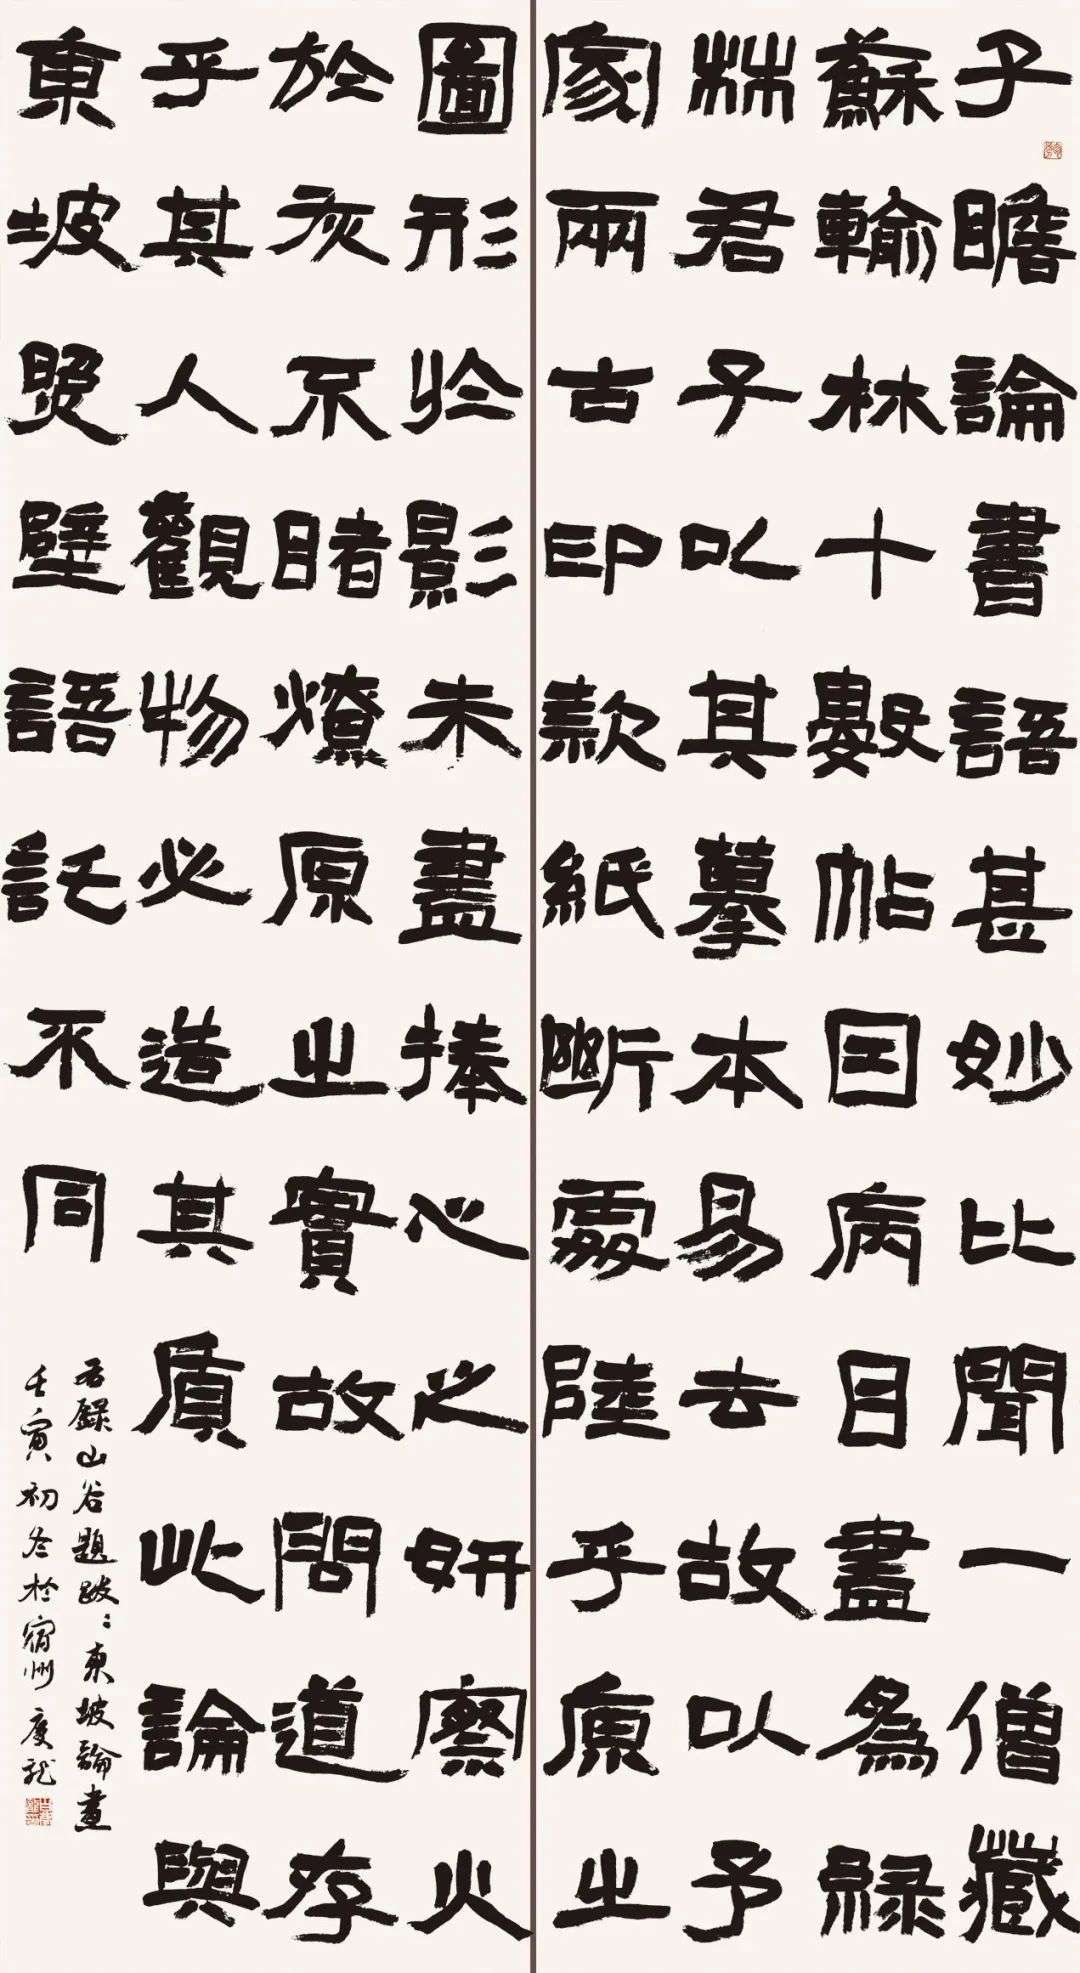 子瞻論書語甚妙比聞一僧藏
蘇輸林十數帖因病目盡為緑
林君子以其摹本易去故以予
家兩古印款紙斷處陸乎原之
圖形於影未盡捧心之妍察火
於灰不睹燎原之實故問道存
乎其人觀物必造其質此論與
東坡照壁語託不同
右錄山谷題跋：東坡論畫
壬寅初冬於宿州度龍